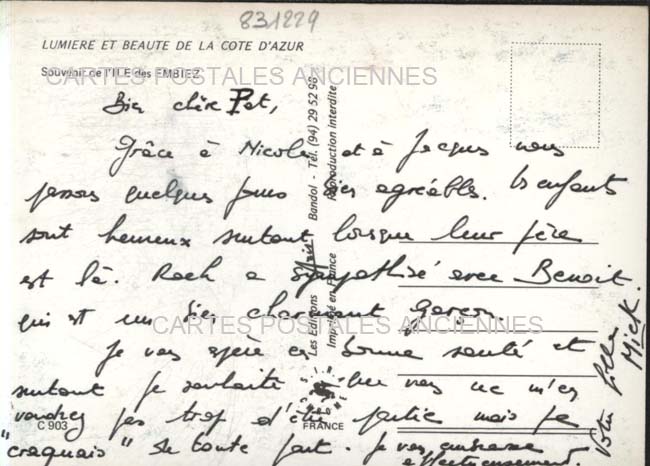 831229
LUMIERE ET BEAUTE DE LA COTE D'AZUR
Souvenir de l'ILE des EMBIEZ
CARTES POSTALES ANCIENNES
Bien chère Pet,
Grâce à Nicolas et à Jacques nous
passons quelques jours bien agréables. Les enfants
sont heureux surtout lorsque leur père
est là. Roch a sympathisé avec Benoit
qui est un bien charmant garçon.
CARTES POSTALES ANCIENNES
Je vous espère en bonne santé et
surtout je souhaite que vous ne m'en
voudrez pas trop d'être partie mais je
"craquais" de toute part. Je vous embrasse
affectueusement
votre fille
Mick.
Les Editions Bandol - Tél. (94) 29 52 96
Imprimé en France Reproduction interdite
C 903
FRANCE